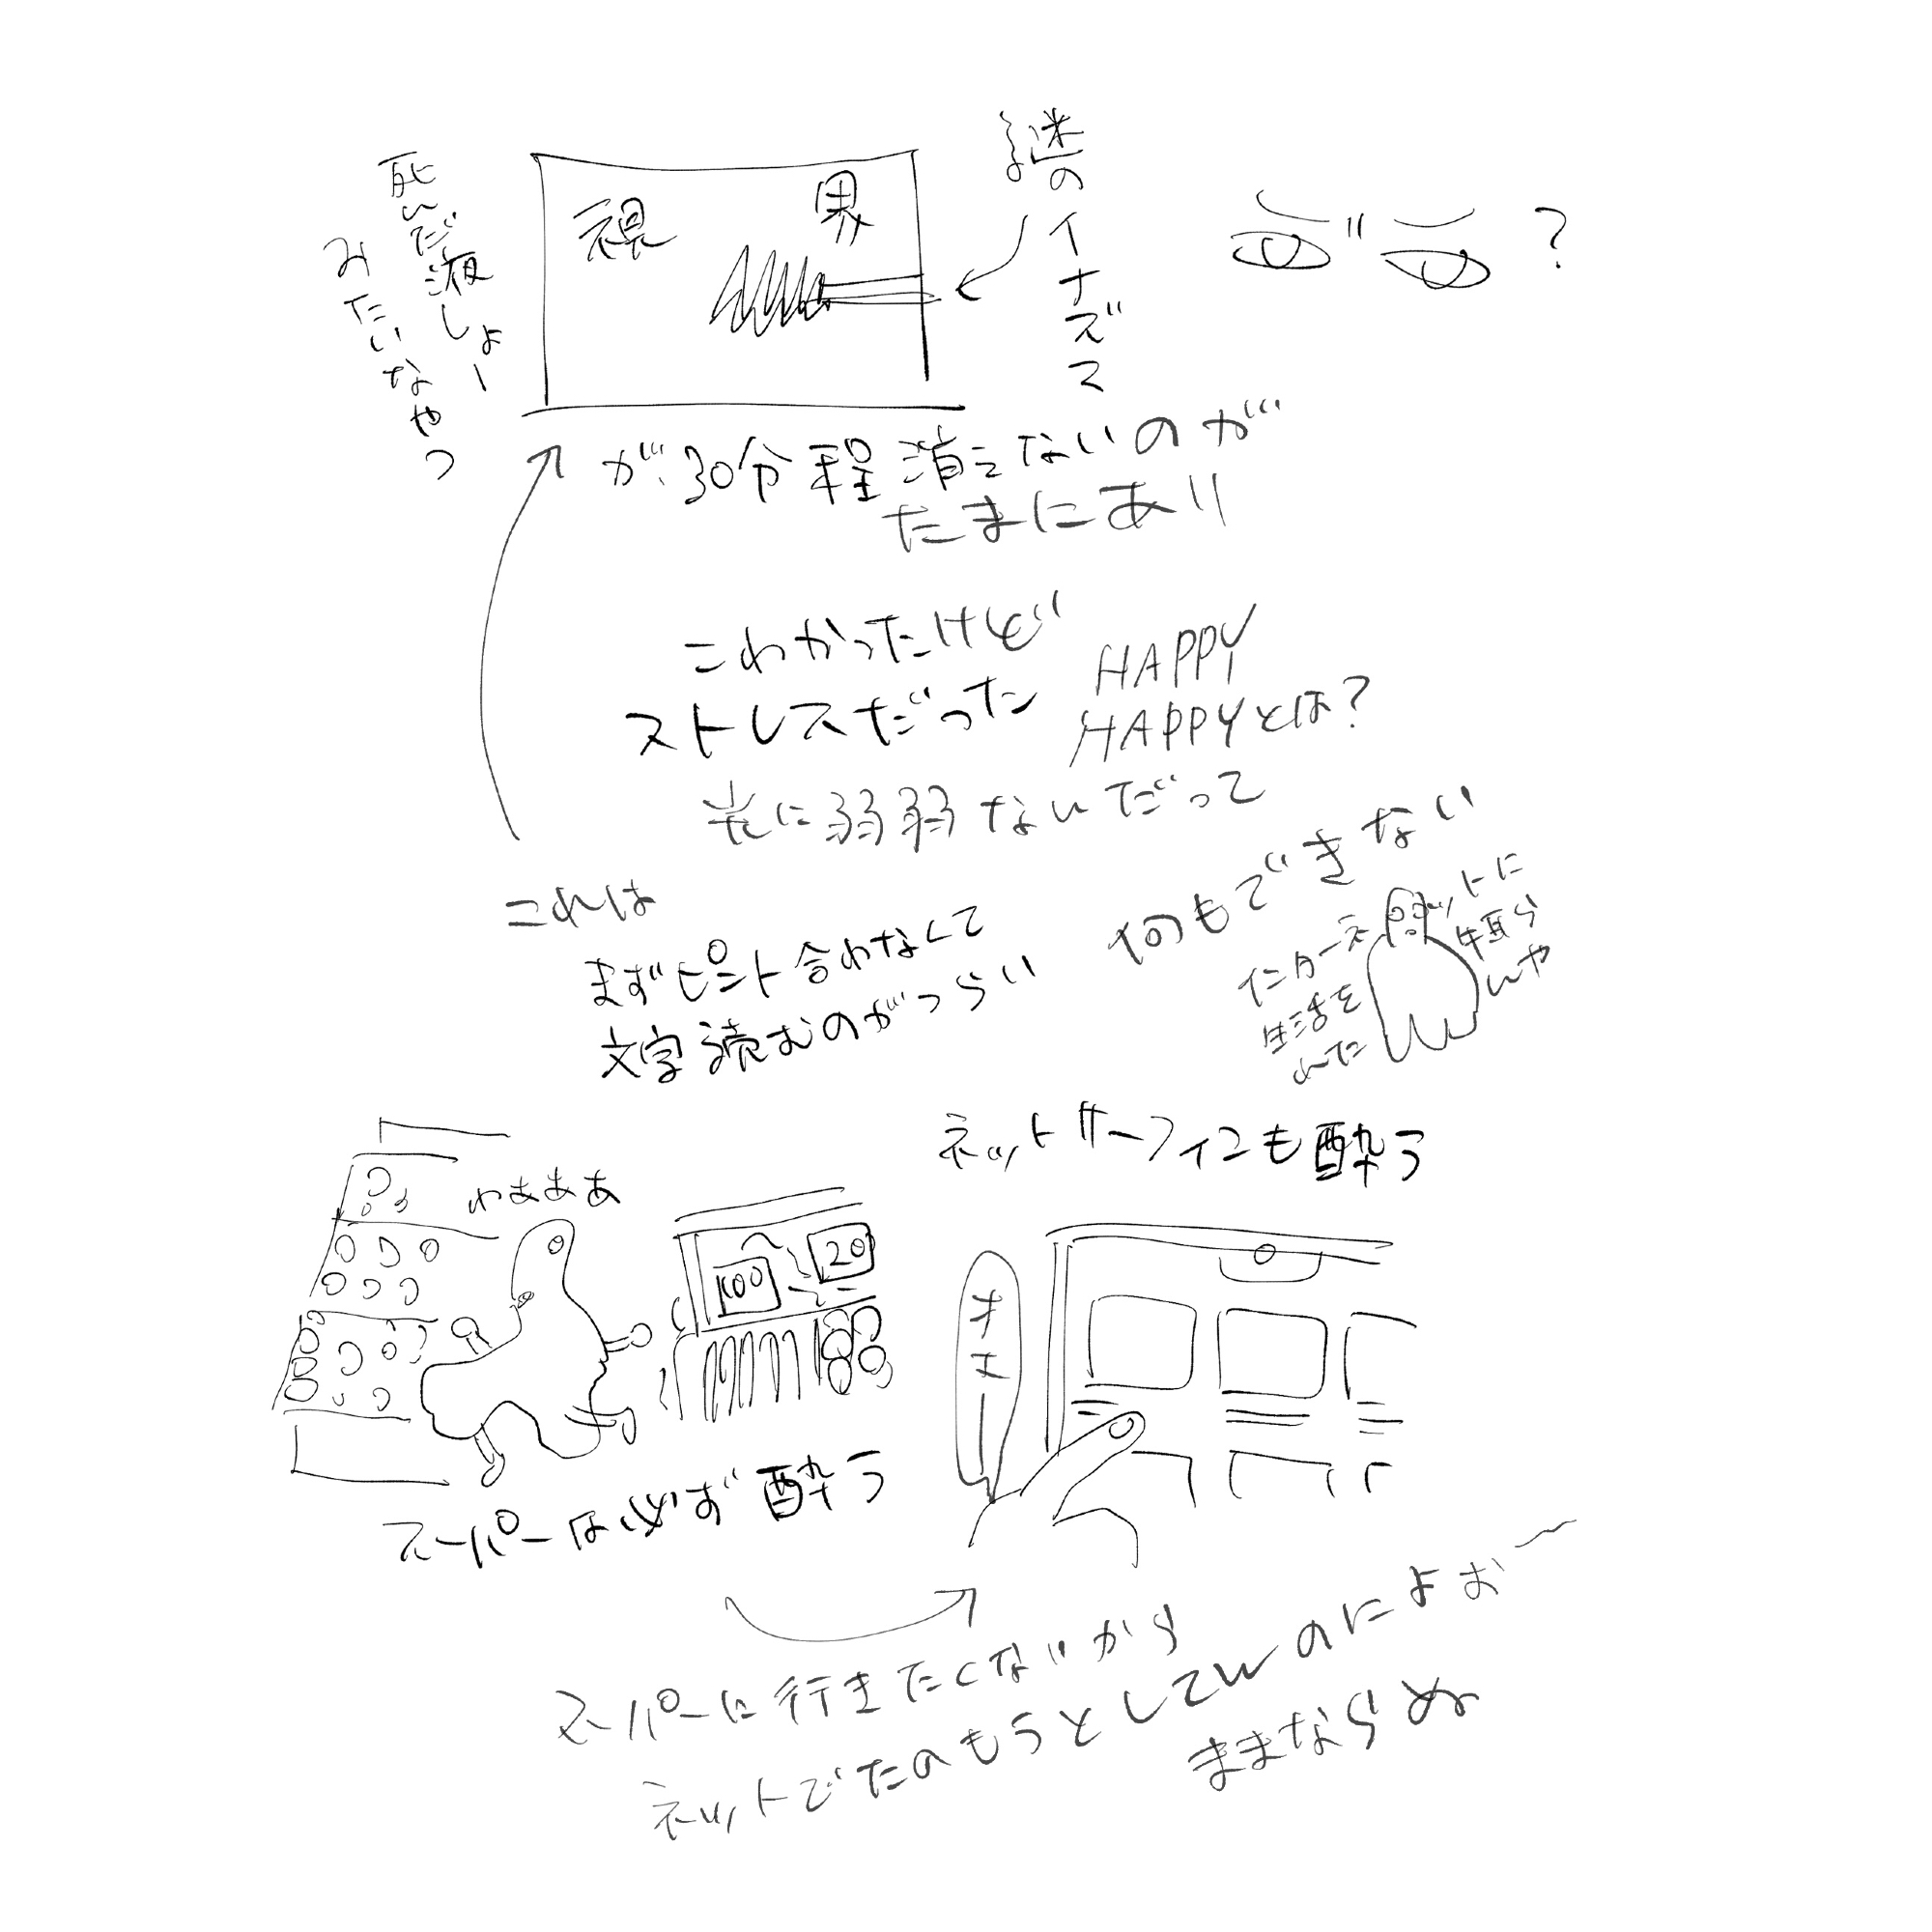 謎の
イナズマ
視 界
死んだ液しょー
みたいなやつ
?
が30分程消えないのが
たまにあり
こわかったけど
ストレスだった
HAPPY
HAPPYとは?
光に弱弱ないだって
何もできない
インターネットに
生活を牛耳ら
れてた んや
これは
まずピント合わなくて
文字読むのがつらい
ネットサーフィンも酔う
わぁああ
100
20
オエー
スーパーは必ず酔う
スーパーに行きたくないから
ネットでたのもうとしてんのによぉー
ままならぬ